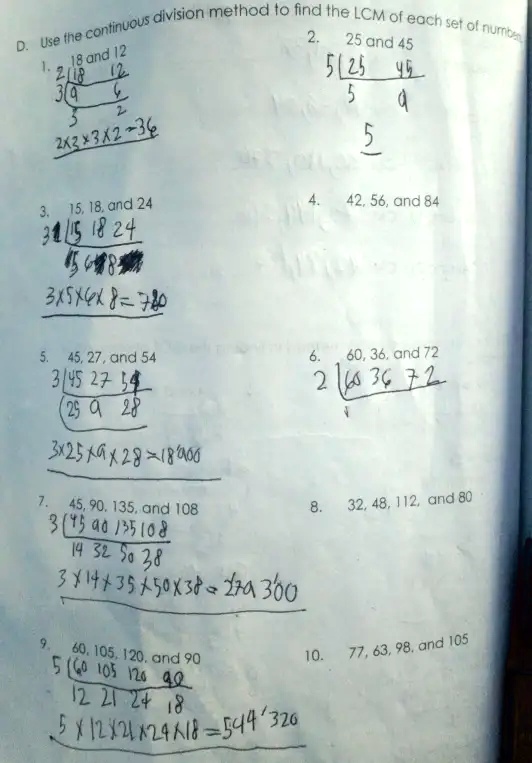 D. Use the continuous division method to find the LCM of each set of number
1. 18 and 12
2 18 12
3 9 6
3 2
2x3x3x2=36
2. 25 and 45
5 25 45
5 9
5
3. 15, 18, and 24
3 15 18 24
5 6 8
3x5x6x8=780
4. 42, 56, and 84
5. 45, 27, and 54
3 45 27 54
25 9 28
3x25x9x28=18'900
6. 60, 36, and 72
2 60 36 72
7. 45, 90, 135, and 108
3 45 90 135 108
14 32 50 38
3x14x35x50x38=279 300
8. 32, 48, 112, and 80
9. 60, 105, 120, and 90
5 60 105 120 90
12 21 24 18
5x12x21x24x18=544'320
10. 77, 63, 98, and 105